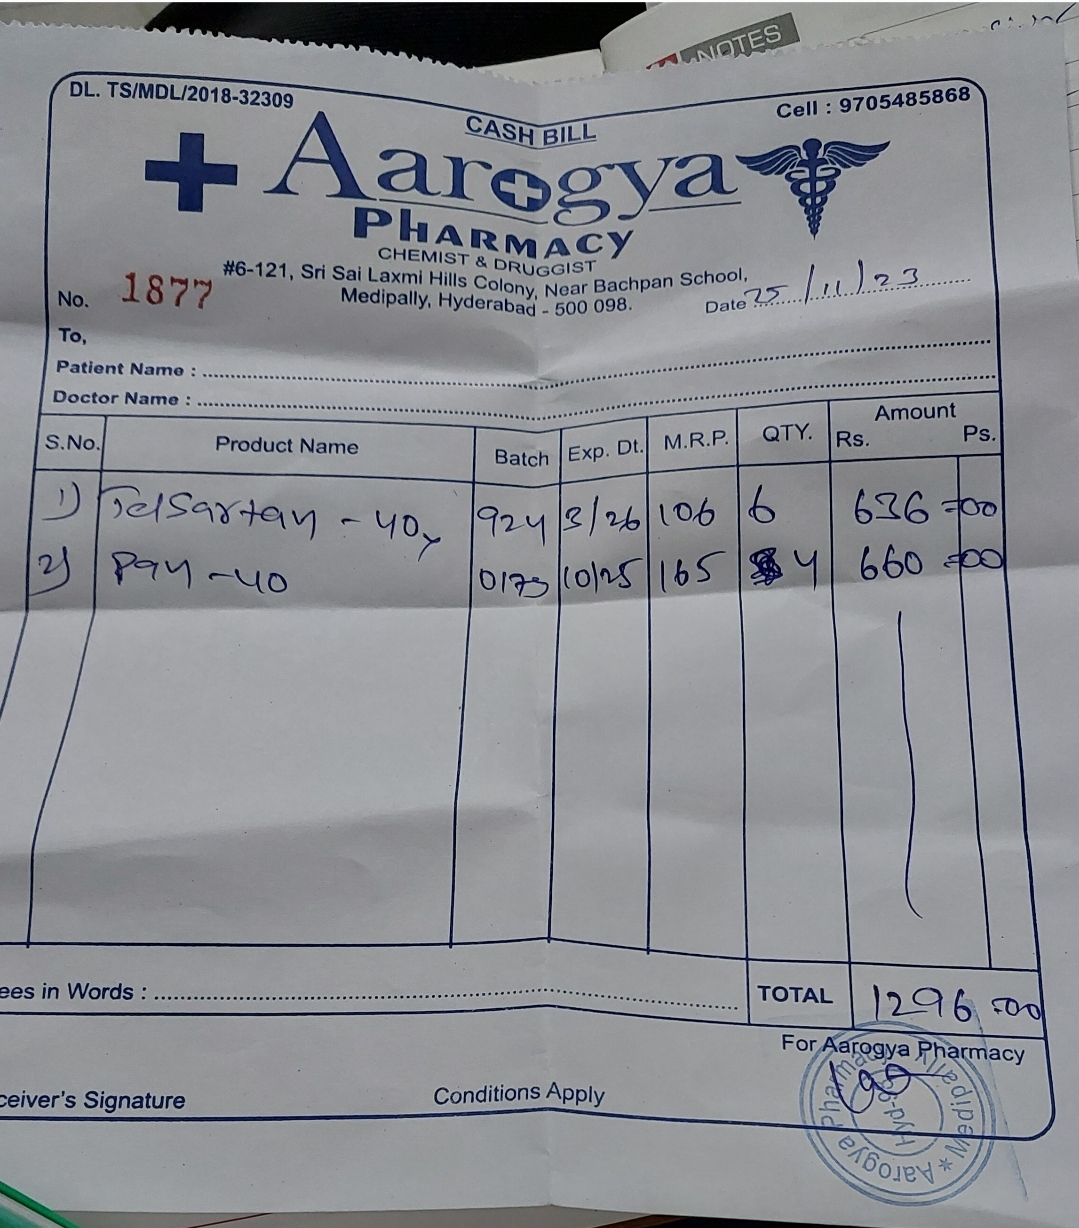 NOTES
DL. TS/MDL/2018-32309
Cell : 9705485868
CASH BILL
Aarogya
PHARMACY
CHEMIST & DRUGGIST
#6-121, Sri Sai Laxmi Hills Colony, Near Bachpan School,
Medipally, Hyderabad - 500 098.
No. 1877
Date 25/11/23
To,
Patient Name :
Doctor Name :
S.No. Product Name Batch Exp. Dt. M.R.P. QTY. Amount Rs. Ps.
1) Telsartan - 40 924 3/26 106 6 636=00
2) Pan - 40 10/25 165 4 660=00
ees in Words : TOTAL 1296=00
For Aarogya Pharmacy
ceiver's Signature Conditions Apply
Aarogya Pharmacy * Medipally
Hyd-